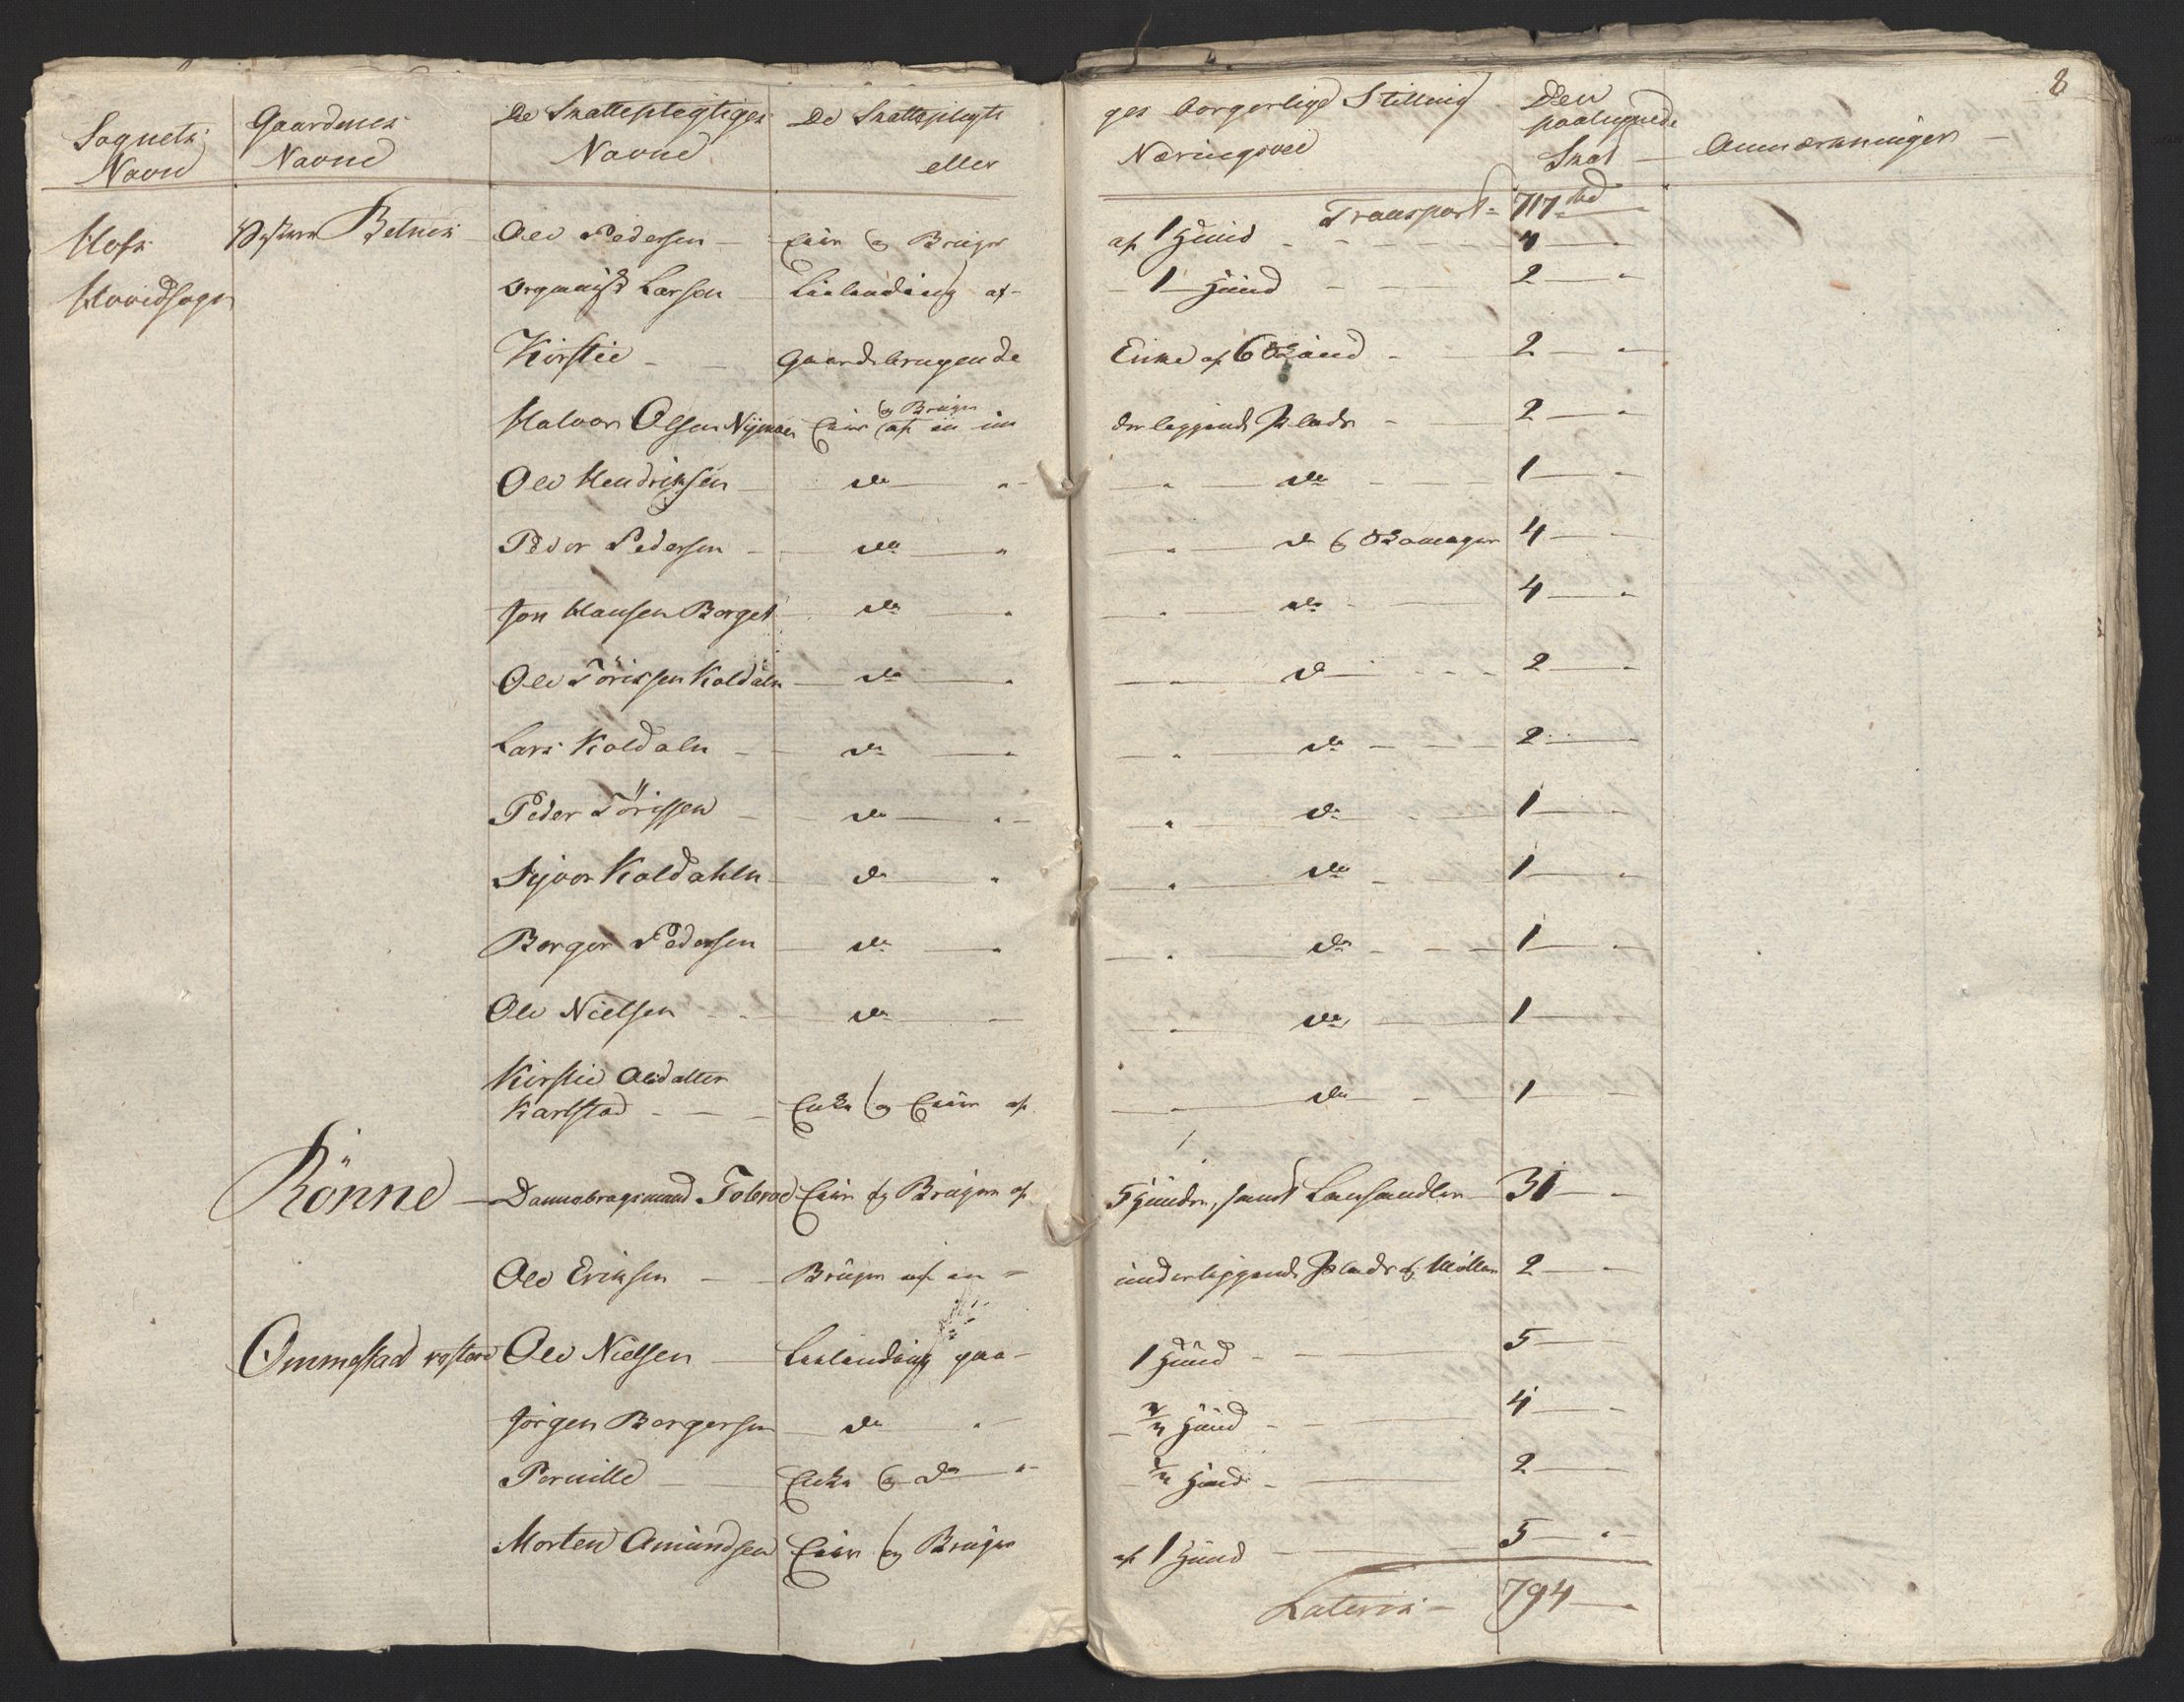 8
Sognets Navn | Gaardenes Navne | De Skattepligtiges Navne | De Skattepligti eller | ges borgerlige Stilling Næringsvei | Den paalignede Skat | Anmærkninger
Transport 717
Hofs Hovedsogn | Betnes | Ole Pedersen | Eier og Bruger | af 1 Huud | 4
Organist Larsen | Leilænding af | 1 Huud | 2
Kirstie | Gaardbrugende | Enke af 6 | 2
Halvor Olsen | Eier og Bruger af en un | derliggende Plads | 2
Ole Hendriksen | do | do | 1
Peder Pedersen | do | do | 4
Jon Hansen Borget | do | do | 4
Ole Törissen Koldaln | do | do | 2
Lars Koldaln | do | do | 2
Peder Törissen | do | do | 1
Syvor Koldahln | do | do | 1
Borger Pedersen | do | do | 1
Ole Nielsen | do | do | 1
Kirstie Olsdatter
Karlstad | Enke og Eier af | do | 1
Rönne | Dannebrogsmand | Eier og Bruger af | 5 Huuder, samt | 31
Ole Eriksen | Bruger af en | underliggende Plads og Möller | 2
Ommestad vestere | Ole Nielsen | Leilænding paa | 1 Huud | 5
Jörgen Borgersen | do | Huud | 4
Pernille | Enke og do | Huud | 2
Morten Amundsen | Eier og Bruger | af 1 Huud | 5
Lateris 794